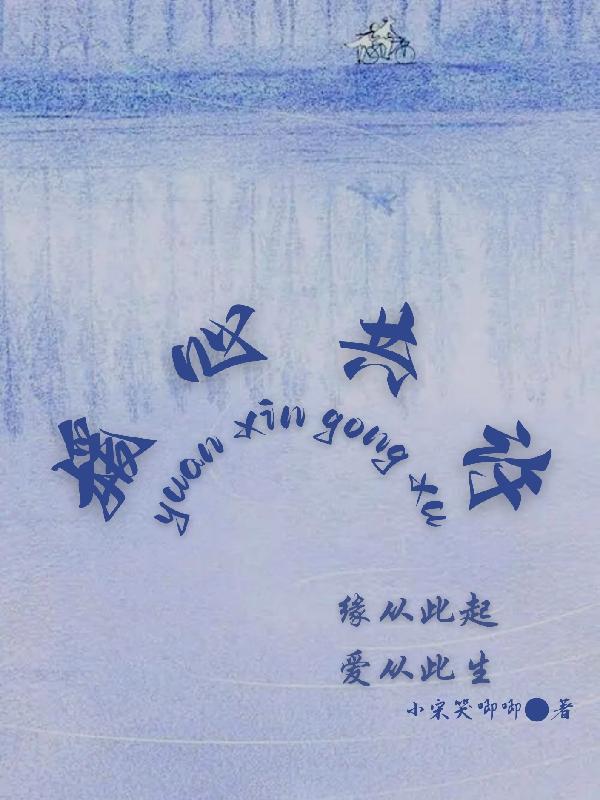 缘心共许
yuan xin gong xu
缘从此起
爱从此生
小宋笑唧唧●著